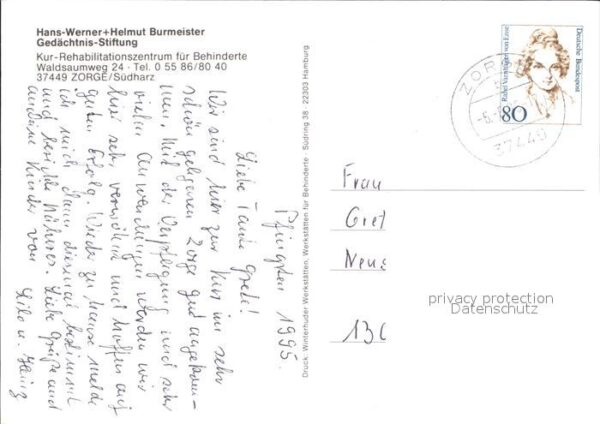 Hans-Werner+Helmut Burmeister
Gedächtnis-Stiftung
Kur-Rehabilitationszentrum für Behinderte
Waldsaumweg 24 · Tel. 0 55 86/80 40
37449 ZORGE/Südharz
Pfingsten 1995.
Liebe Tante Grete!
Wir sind hier zur Kur im sehr
schön gelegenen Zorge gut angekom-
men. Mit der Verpflegung und sehr
vielen Anwendungen werden wir
hier sehr verwöhnt und hoffen auf
guten Erfolg. Wieder zu Hause melde
ich mich dann diesmal bestimmt
und berichte Näheres. Liebe Grüße und
Kinder von
u. Heinz
Druck: Winterhuder Werkstätten, Werkstätten für Behinderte · Südring 38 · 22303 Hamburg
Deutsche Bundespost
Rahel Varnhagen von Ense
80
ZORGE
37449
Frau
Gret
Neue
13C
privacy protection
Datenschutz